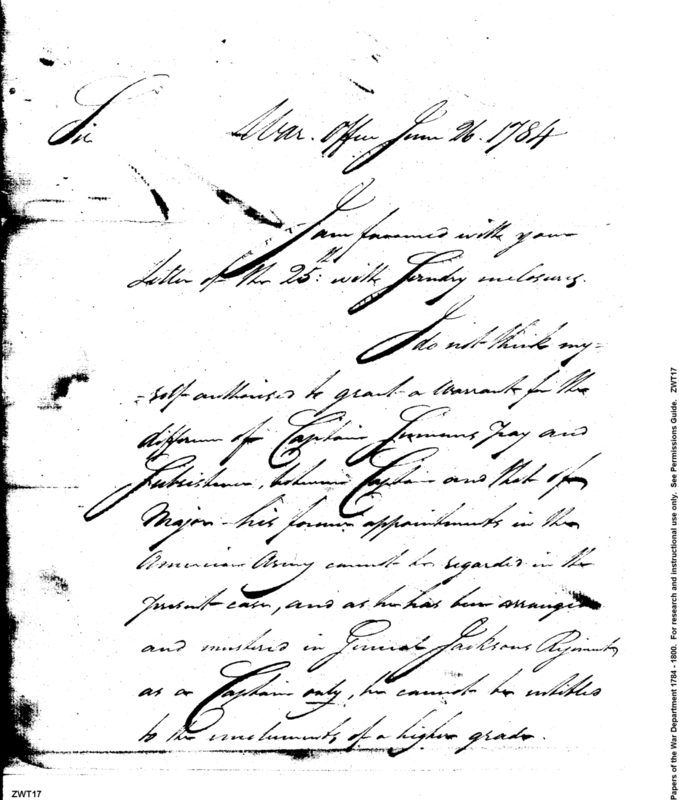 Sir
War. Office June 26. 1784
I am favoured with your
Letter of the 25:th with Sundry enclosures.
I do not think my=
=self authorised to grant a warrant for the
difference of Captain pay and
Subsistence, between Captain and that of
Major - his former appointments in the
American Army cannot be regarded in the
present case, and as he has been arranged
and mustered in General Jacksons Regiment
as a Captain only, he cannot be intitled
to the emoluments of a higher grade.
ZWT17
Papers of the War Department 1784 - 1800. For research and instructional use only. See Permissions Guide. ZWT17